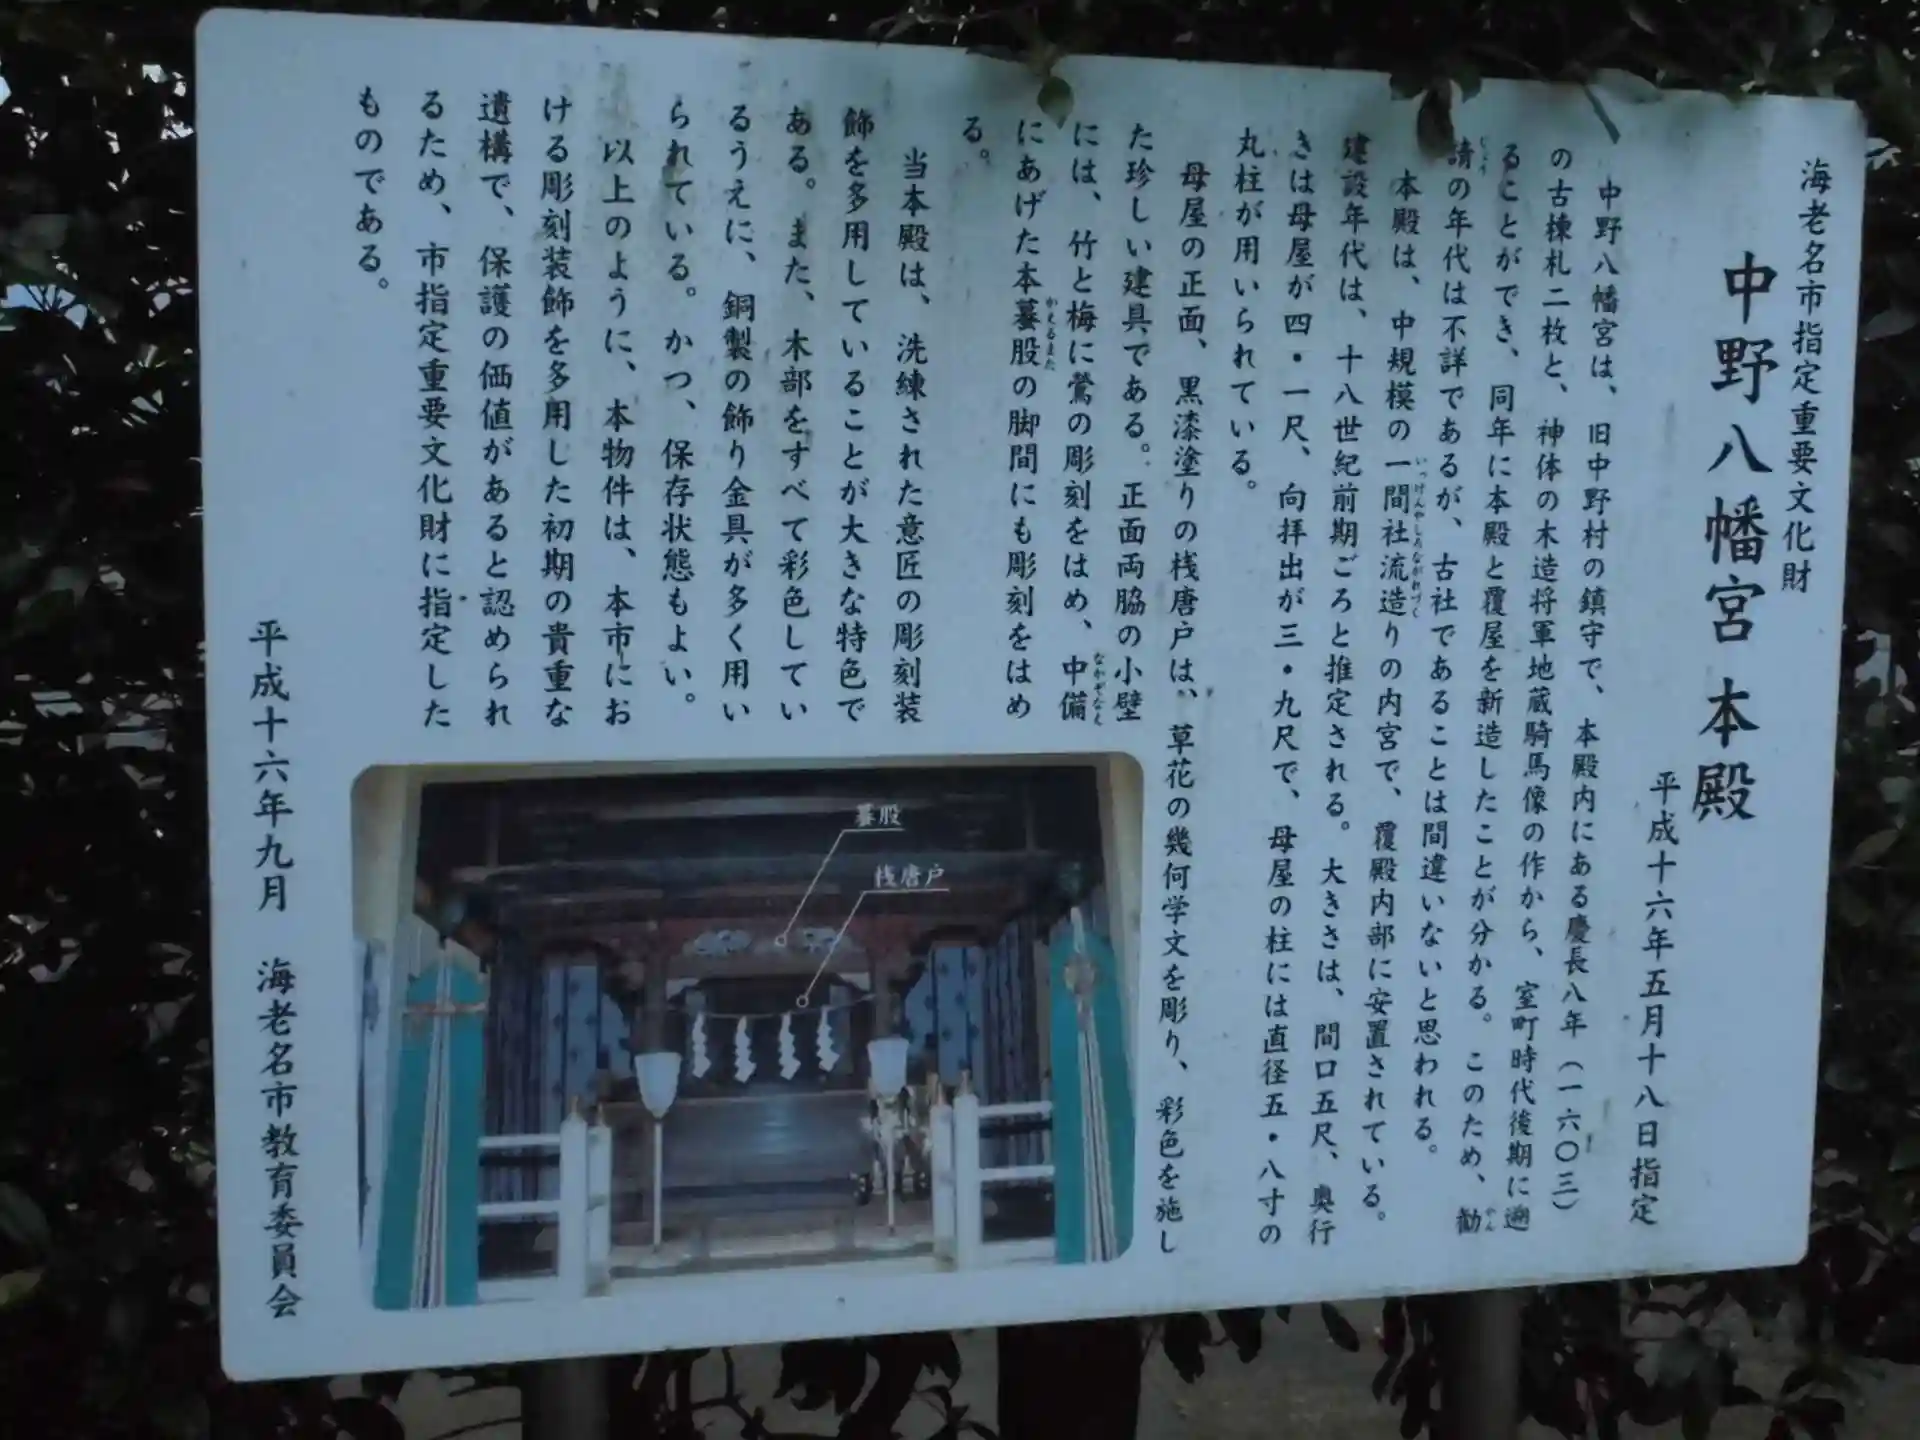 海老名市指定重要文化財
中野八幡宮 本殿
平成十六年五月十八日指定
中野八幡宮は、旧中野村の鎮守で、本殿内にある慶長八年(一六〇三)
の古棟札二枚と、神体の木造将軍地蔵騎馬像の作から、室町時代後期に遡
ることができ、同年に本殿と覆屋を新造したことが分かる。このため、勧
請の年代は不詳であるが、古社であることは間違いないと思われる。
本殿は、中規模の一間社流造りの内宮で、覆殿内部に安置されている。
建設年代は、十八世紀前期ごろと推定される。大きさは、間口五尺、奥行
きは母屋が四・一尺、向拝出が三・九尺で、母屋の柱には直径五・八寸の
丸柱が用いられている。
母屋の正面、黒漆塗りの桟唐戸は、草花の幾何学文を彫り、彩色を施し
た珍しい建具である。正面両脇の小壁
には、竹と梅に鶯の彫刻をはめ、中備
にあげた本蟇股の脚間にも彫刻をはめ
る。
当本殿は、洗練された意匠の彫刻装
飾を多用していることが大きな特色で
ある。また、木部をすべて彩色してい
るうえに、銅製の飾り金具が多く用い
られている。かつ、保存状態もよい。
以上のように、本物件は、本市にお
ける彫刻装飾を多用した初期の貴重な
遺構で、保護の価値があると認められ
るため、市指定重要文化財に指定した
ものである。
蟇股
桟唐戸
平成十六年九月 海老名市教育委員会